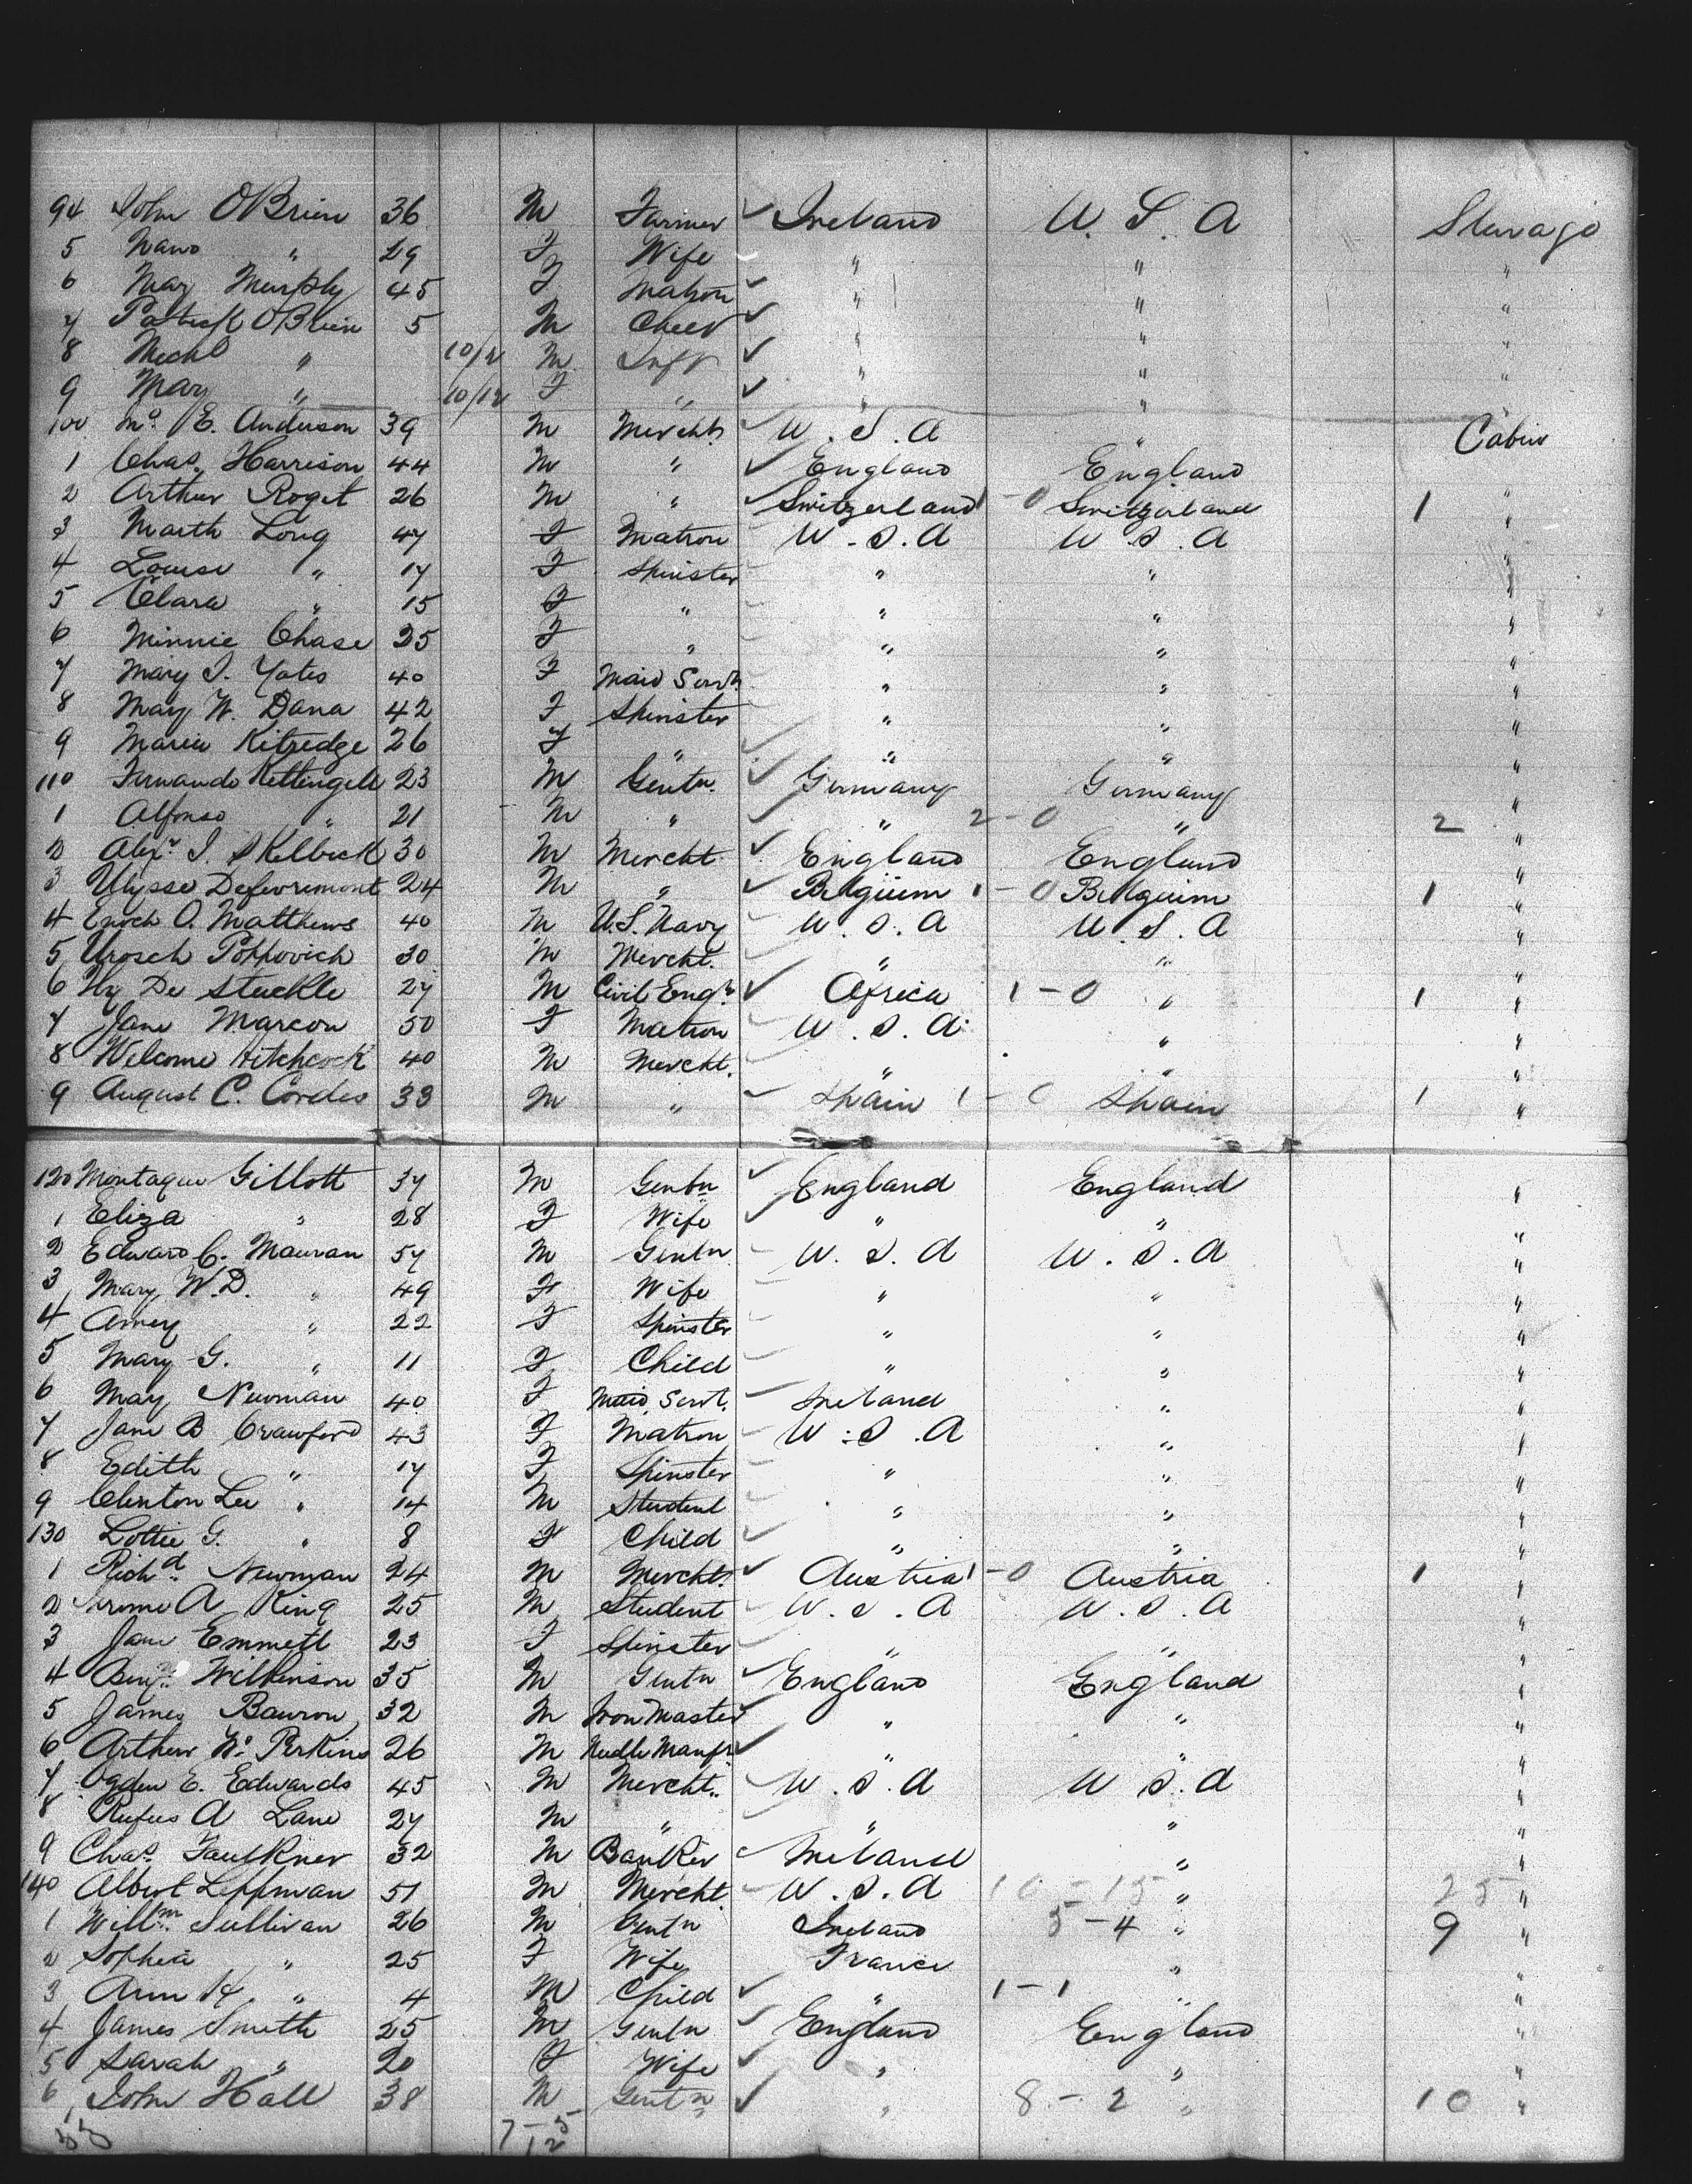 94 John OBrien 36 M Farmer Ireland U. S. A Steerage
5 " 29 F Wife " " "
6 Mary Murphy 45 F Matron " " "
7 Patrick OBrien 5 M Child " " "
8 Michl " 10/12 M Inft " " "
9 Mary " 10/12 F " " " "
100 E. Anderson 39 M Mercht. U. S. A " Cabin
1 Chas. Harrison 44 M " England England "
2 Arthur Roget 26 M " Switzerland 1 - 0 Switzerland 1 "
3 Marth Long 47 F Matron U. S. A U. S. A "
4 Louise " 17 F Spinster " " "
5 Clara " 15 F " " " "
6 Minnie Chase 25 F " " " "
7 Mary I. Yates 40 F Maid Servt. " " "
8 Mary W. Dana 42 F Spinster " " "
9 Maria Kitredge 26 F " " " "
110 Fernando Kettengell 23 M Gentn. Germany Germany "
1 Alfonso " 21 M " " 2 - 0 " 2 "
2 Alexr. I. Skelbeck 30 M Mercht. England England "
3 Ulysse Defevremont 24 M " Belgium 1 - 0 Belguim 1 "
4 Enoch O. Matthews 40 M U.S. Navy U. S. A U. S. A "
5 Urosch Poppovich 30 M Mercht. " " "
6 Hy De Stuckle 27 M Civil Engr. Africa 1 - 0 " 1 "
7 Jane Marcou 50 F Matron U. S. A. " "
8 Welcome Hitchcock 40 M Mercht. " " "
9 August C. Cordes 33 M " Spain 1 - 0 Spain 1 "
120 Montague Gillott 37 M Gentn England England "
1 Eliza " 28 F Wife " " "
2 Edward C. Mauran 57 M Gentn U. S. A U. S. A "
3 Mary W.D. " 49 F Wife " " "
4 Amey " 22 F Spinster " " "
5 Mary G. " 11 F Child " " "
6 May Newman 40 F Maid Servt. Ireland " "
7 Jane B Crawford 43 F Matron U. S. A " "
8 Edith " 17 F Spinster " " "
9 Clinton Lee " 14 M Student " " "
130 Lottie G. " 8 F Child " " "
1 Richd. Newman 24 M Mercht. Austria 1 - 0 Austria 1 "
2 Jerome A King 25 M Student U. S. A U. S. A "
3 Jane Emmett 23 F Spinster " " "
4 Benjn. Wilkinson 35 M Gentn England England "
5 James Bawron 32 M Iron Master " " "
6 Arthur W. Perkins 26 M Needle Manfr " " "
7 Ogden E. Edwards 45 M Mercht. U. S. A U S. A "
8 Rufus A Lane 27 M " " " "
9 Chas. Faulkner 32 M Banker Ireland " "
140 Albert Leppman 51 M Mercht U. S. A 10 - 15 " 25 "
1 Willm. Sullivan 26 M Gentn Ireland 5 - 4 " 9 "
2 Sophia " 25 F Wife France " "
3 Ann H. " 4 M Child " 1 - 1 " "
4 James Smith 25 M Gentn England England "
5 Sarah " 20 F Wife " " "
6 John Hall 38 M Gentn " 8 - 2 " 10 "
33 7 - 5
12